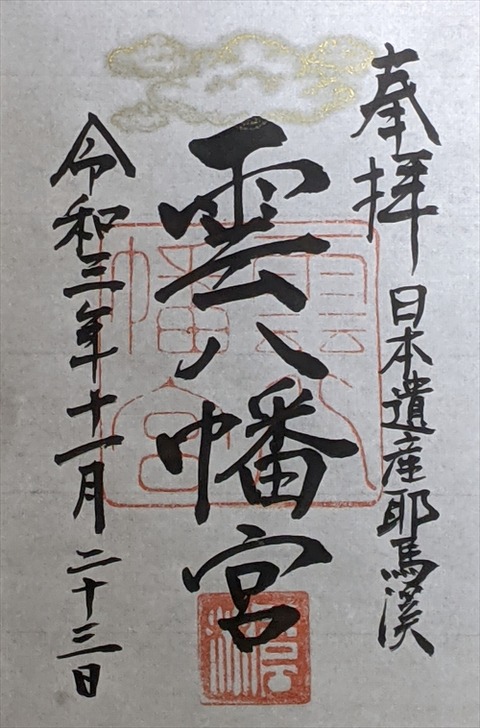 奉拝
日本遺産耶馬溪
雲八幡宮
令和三年十一月二十三日
雲八幡宮